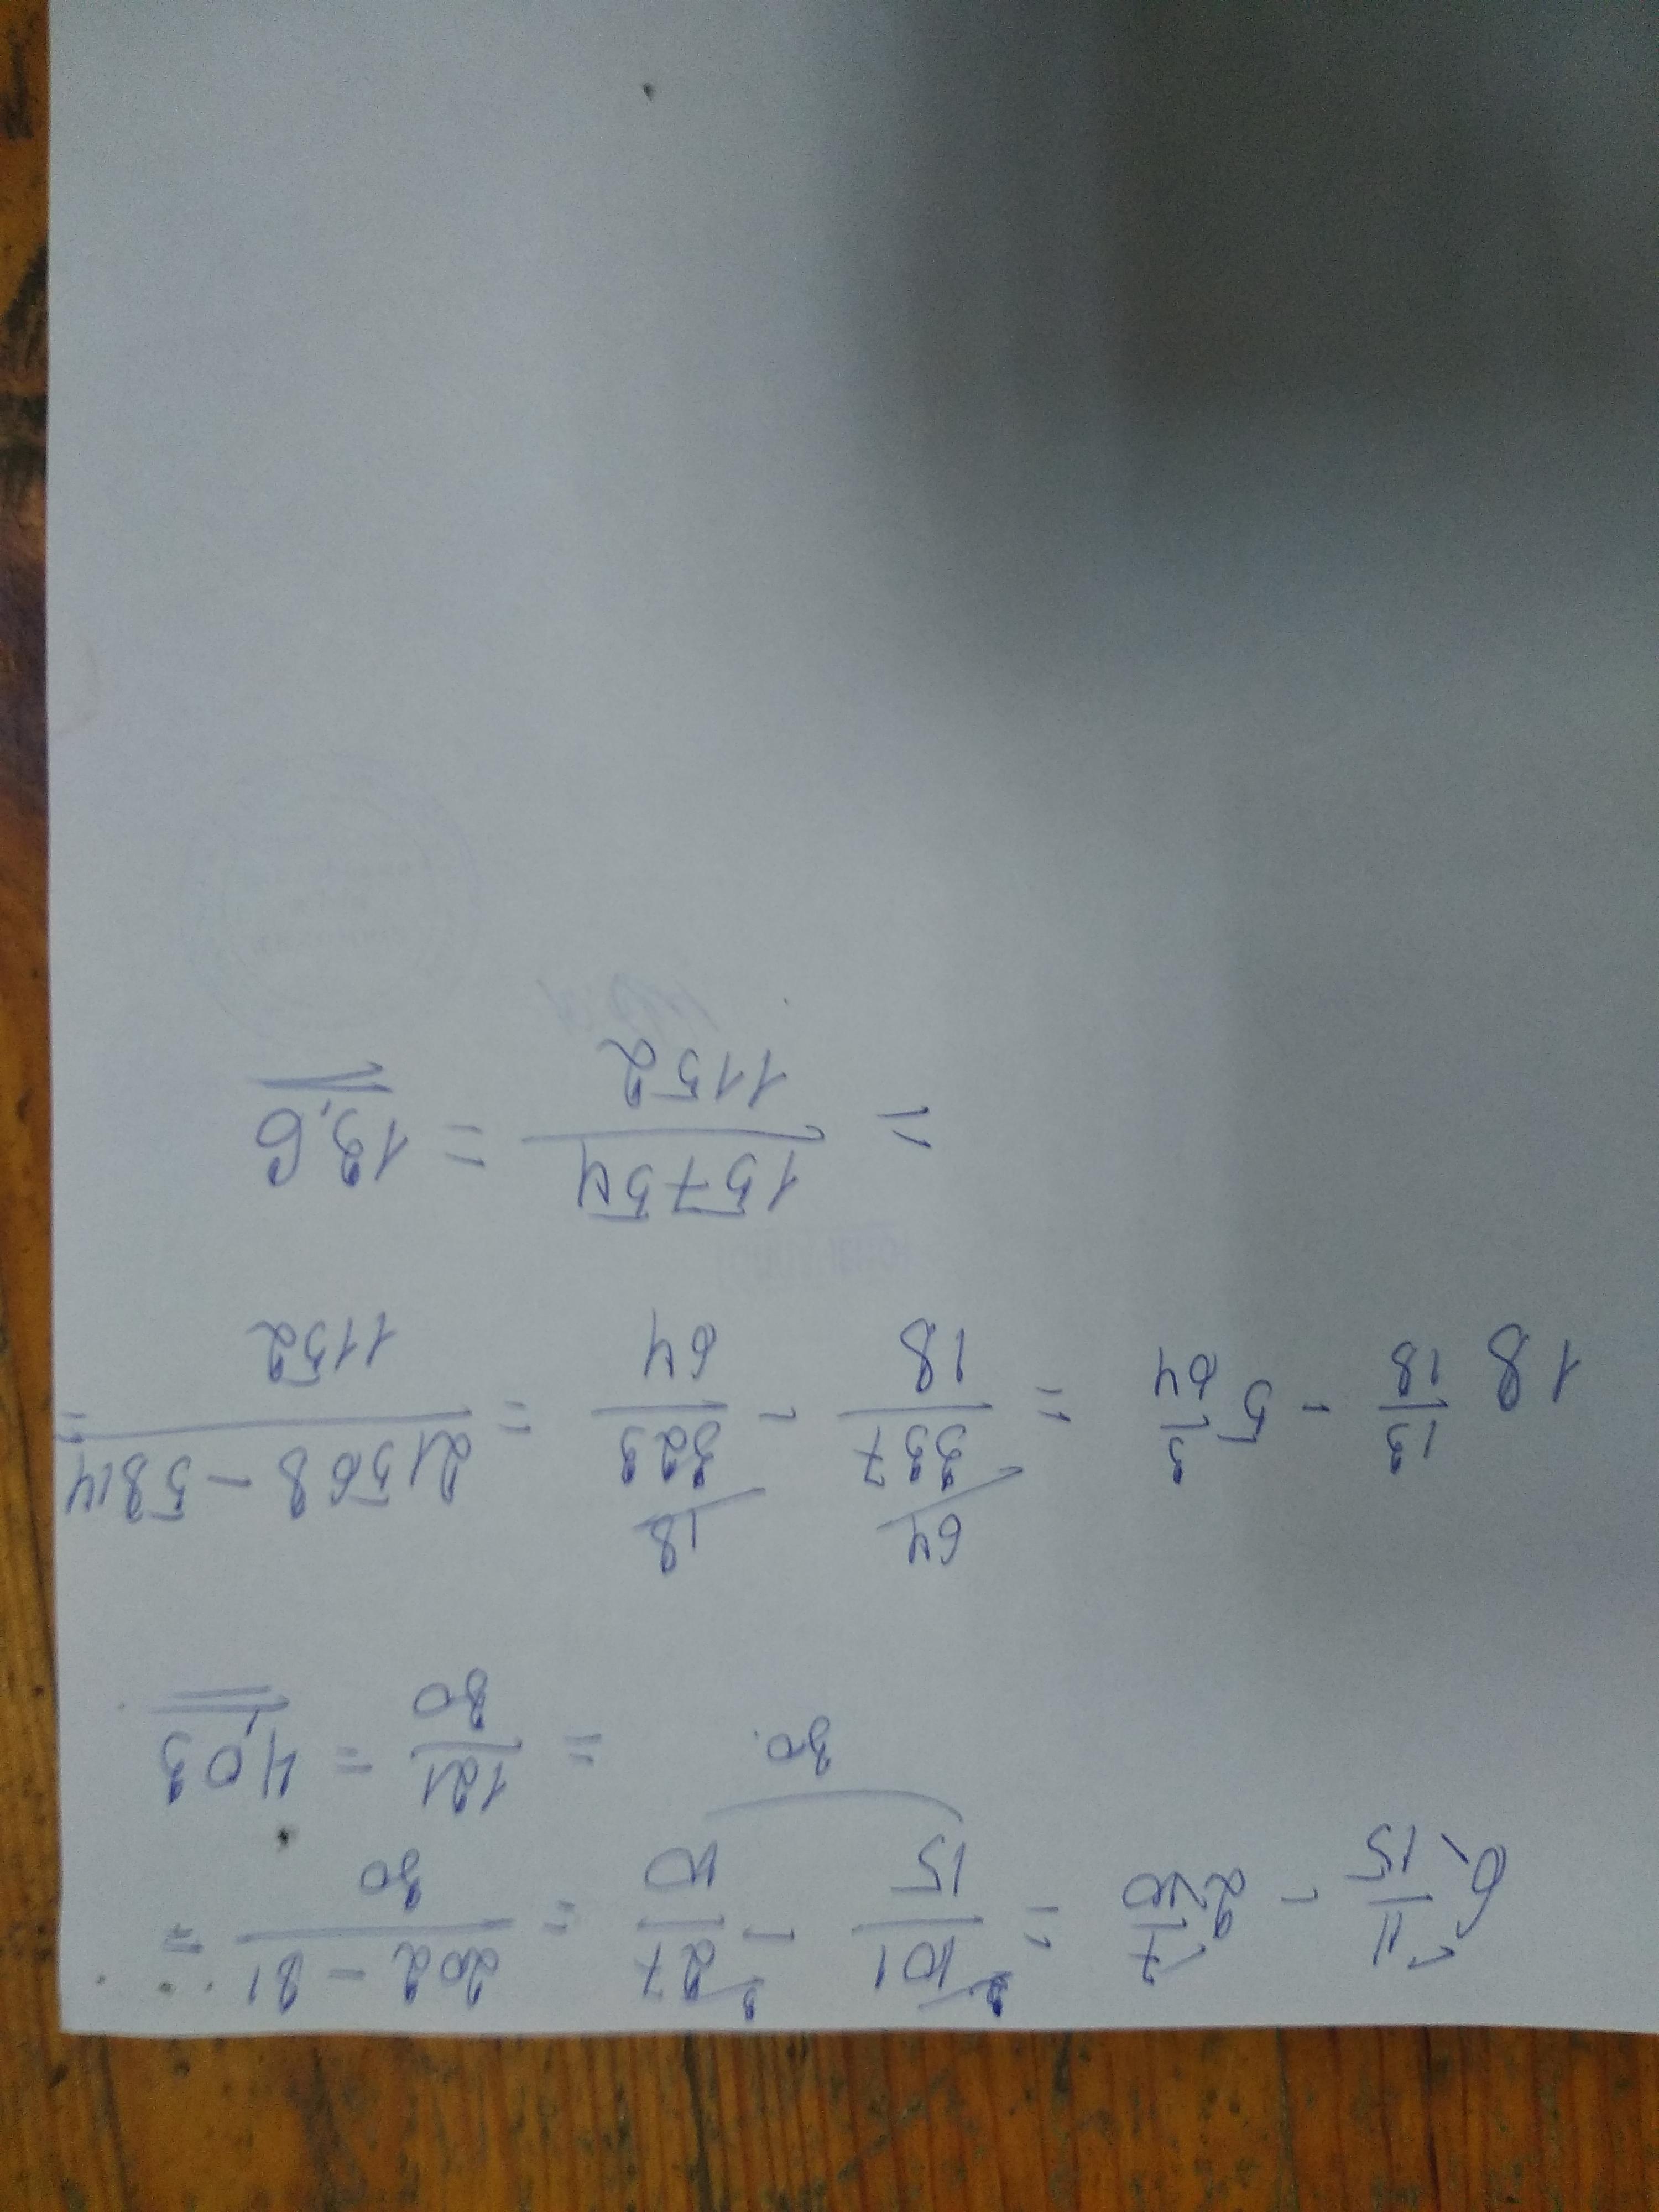 6 11/15 - 2 7/10 = 101/15 - 27/10 = 202 - 81/30 =
30 = 121/30 = 4,03
18 13/18 - 5 3/64 = 337/18 - 323/64 = 21568 - 5814/1152 =
= 15754/1152 = 13,6